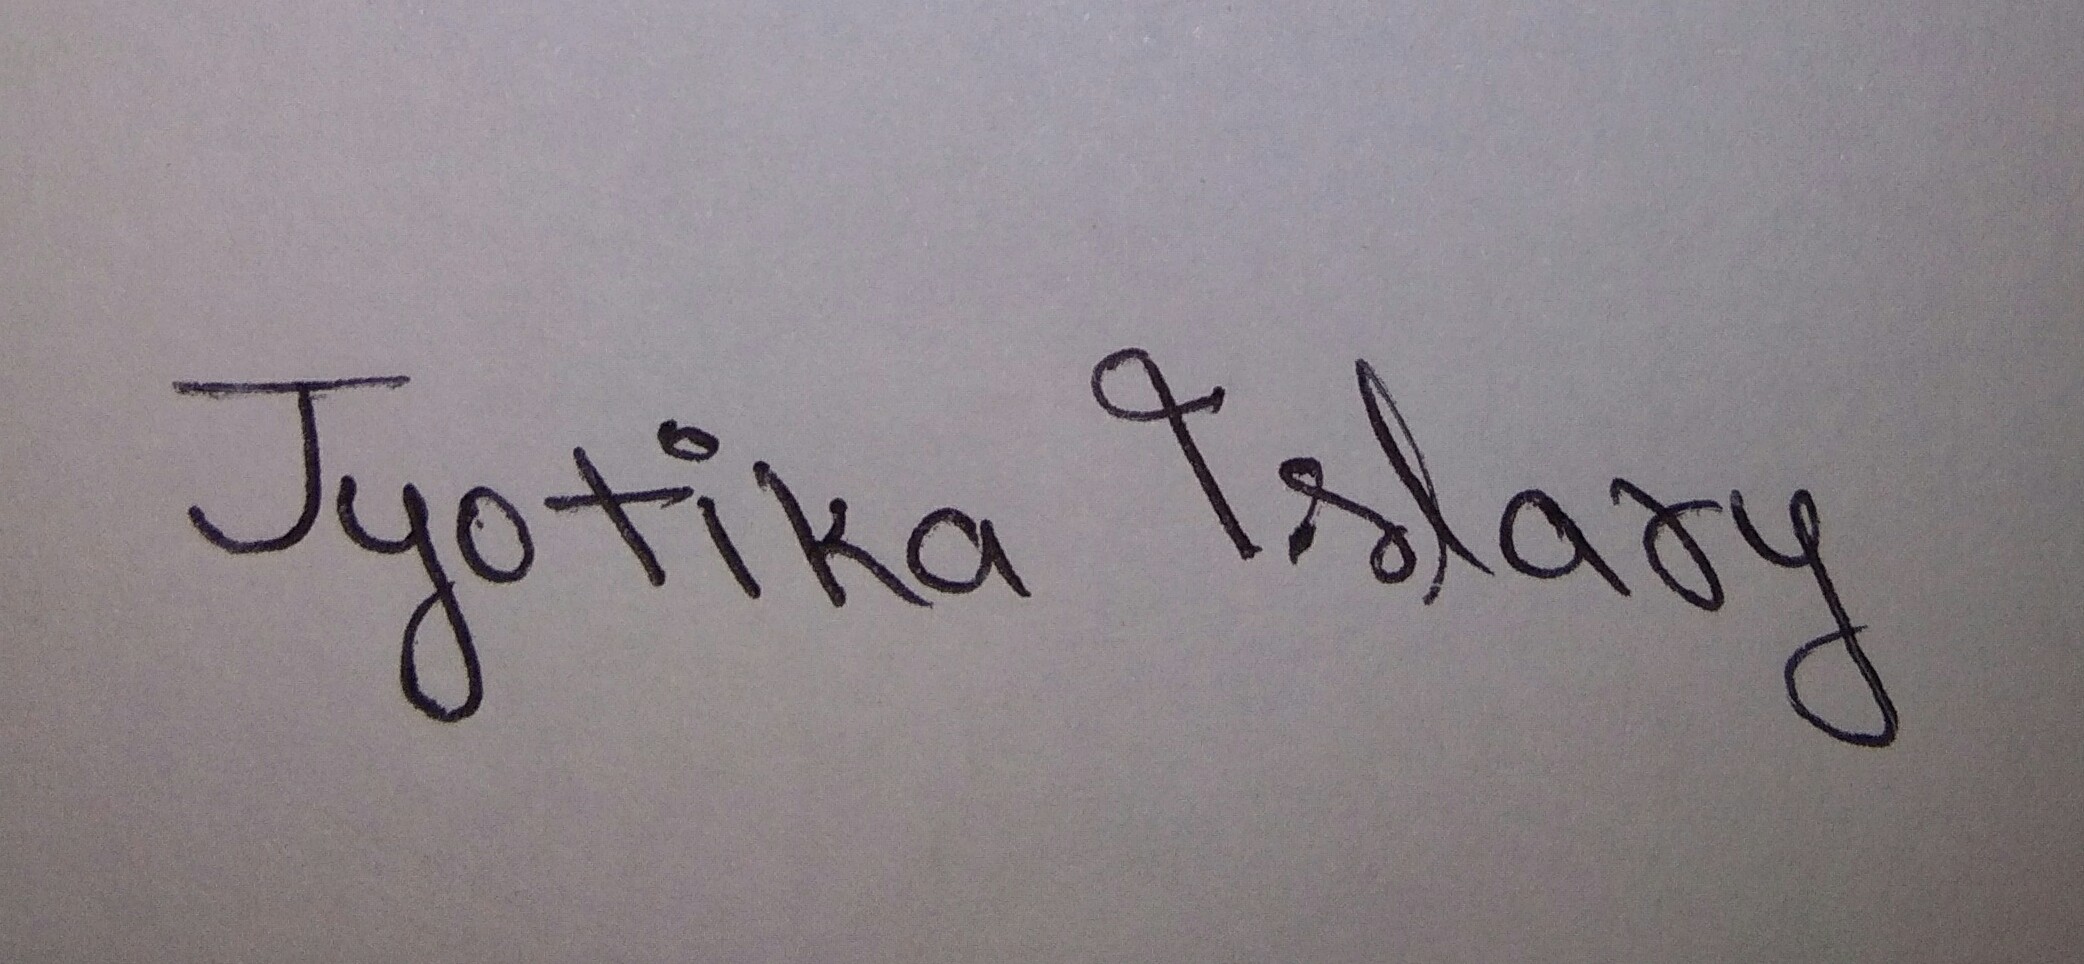 Jyotika Islary